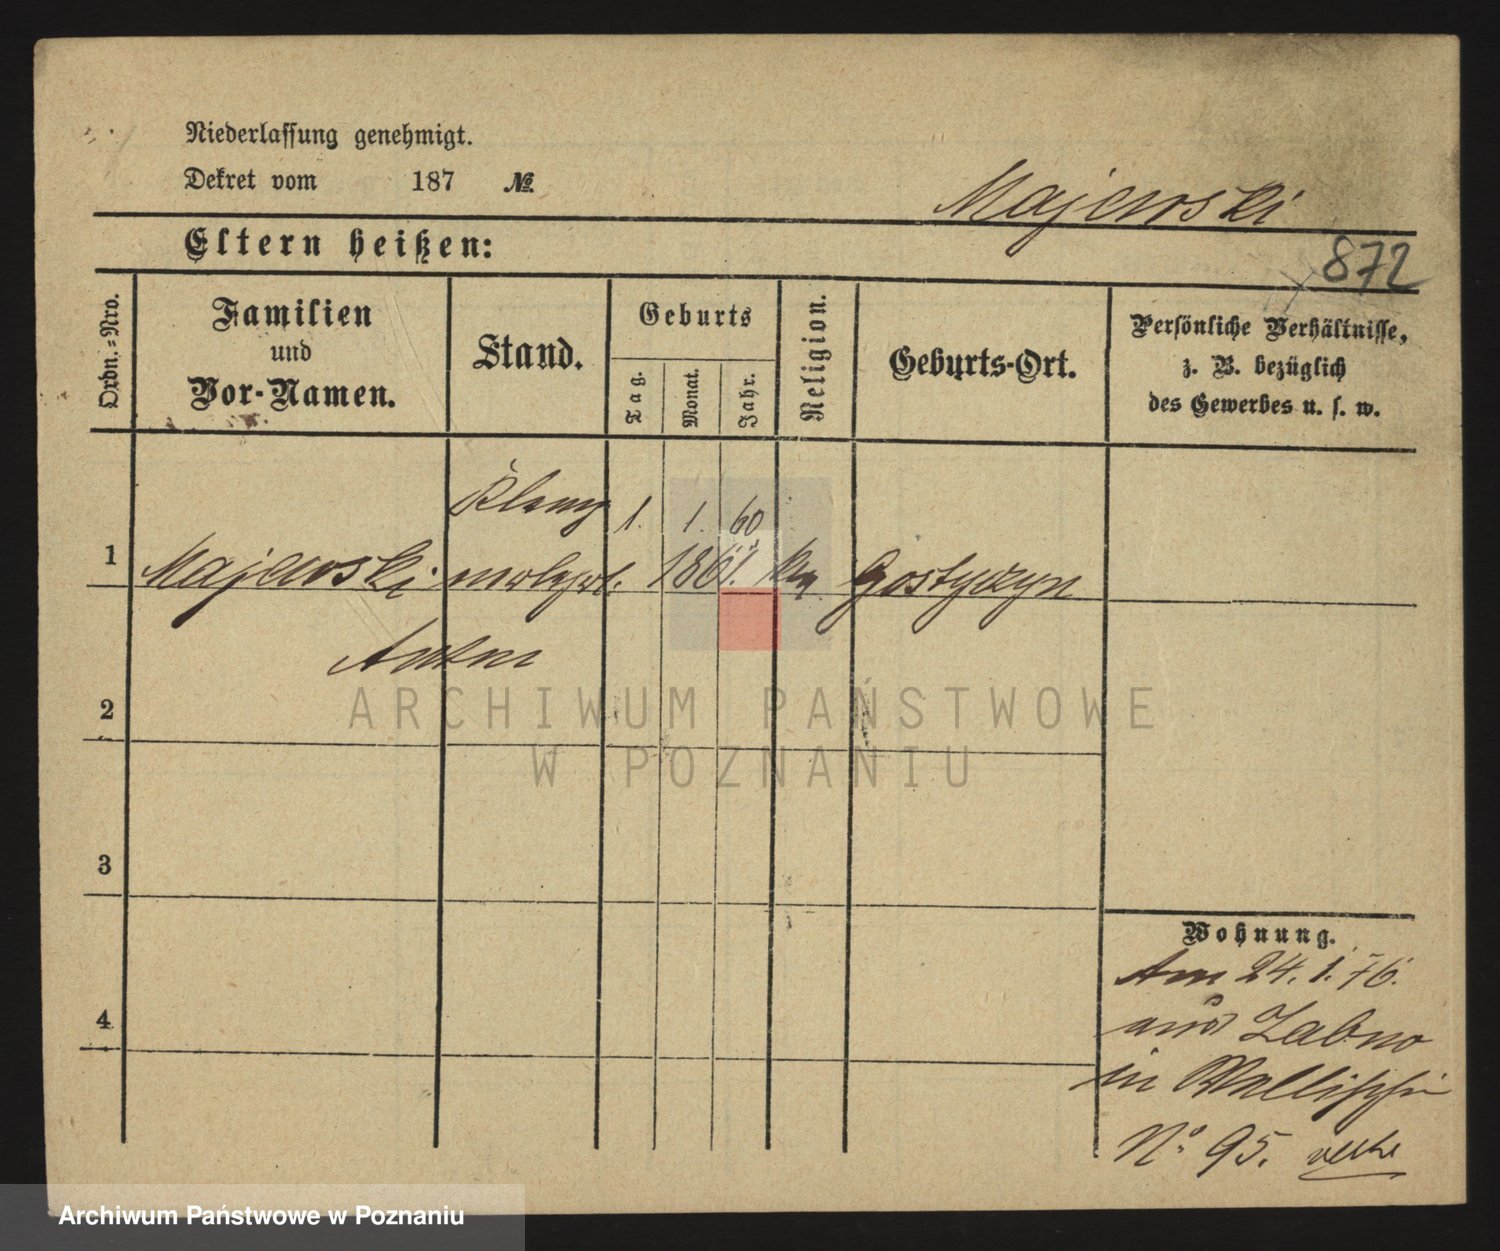 Niederlassung genehmigt.
Dekret vom 187 №
Majewski
Eltern heißen:
872
Ordn.=Nro.
Familien
und
Vor-Namen.
Stand.
Geburts
Tag.
Monat.
Jahr.
Religion.
Geburts-Ort.
Persönliche Verhältnisse,
z. B. bezüglich
des Gewerbes u. s. w.
1. 1. 60
1 Majewski 1861. Gostyczyn
2
3
4
Wohnung.
Am 24. 1. 76.
aus Zabno
in Wallischei
No. 95.
ARCHIWUM PAŃSTWOWE
W POZNANIU
Archiwum Państwowe w Poznaniu